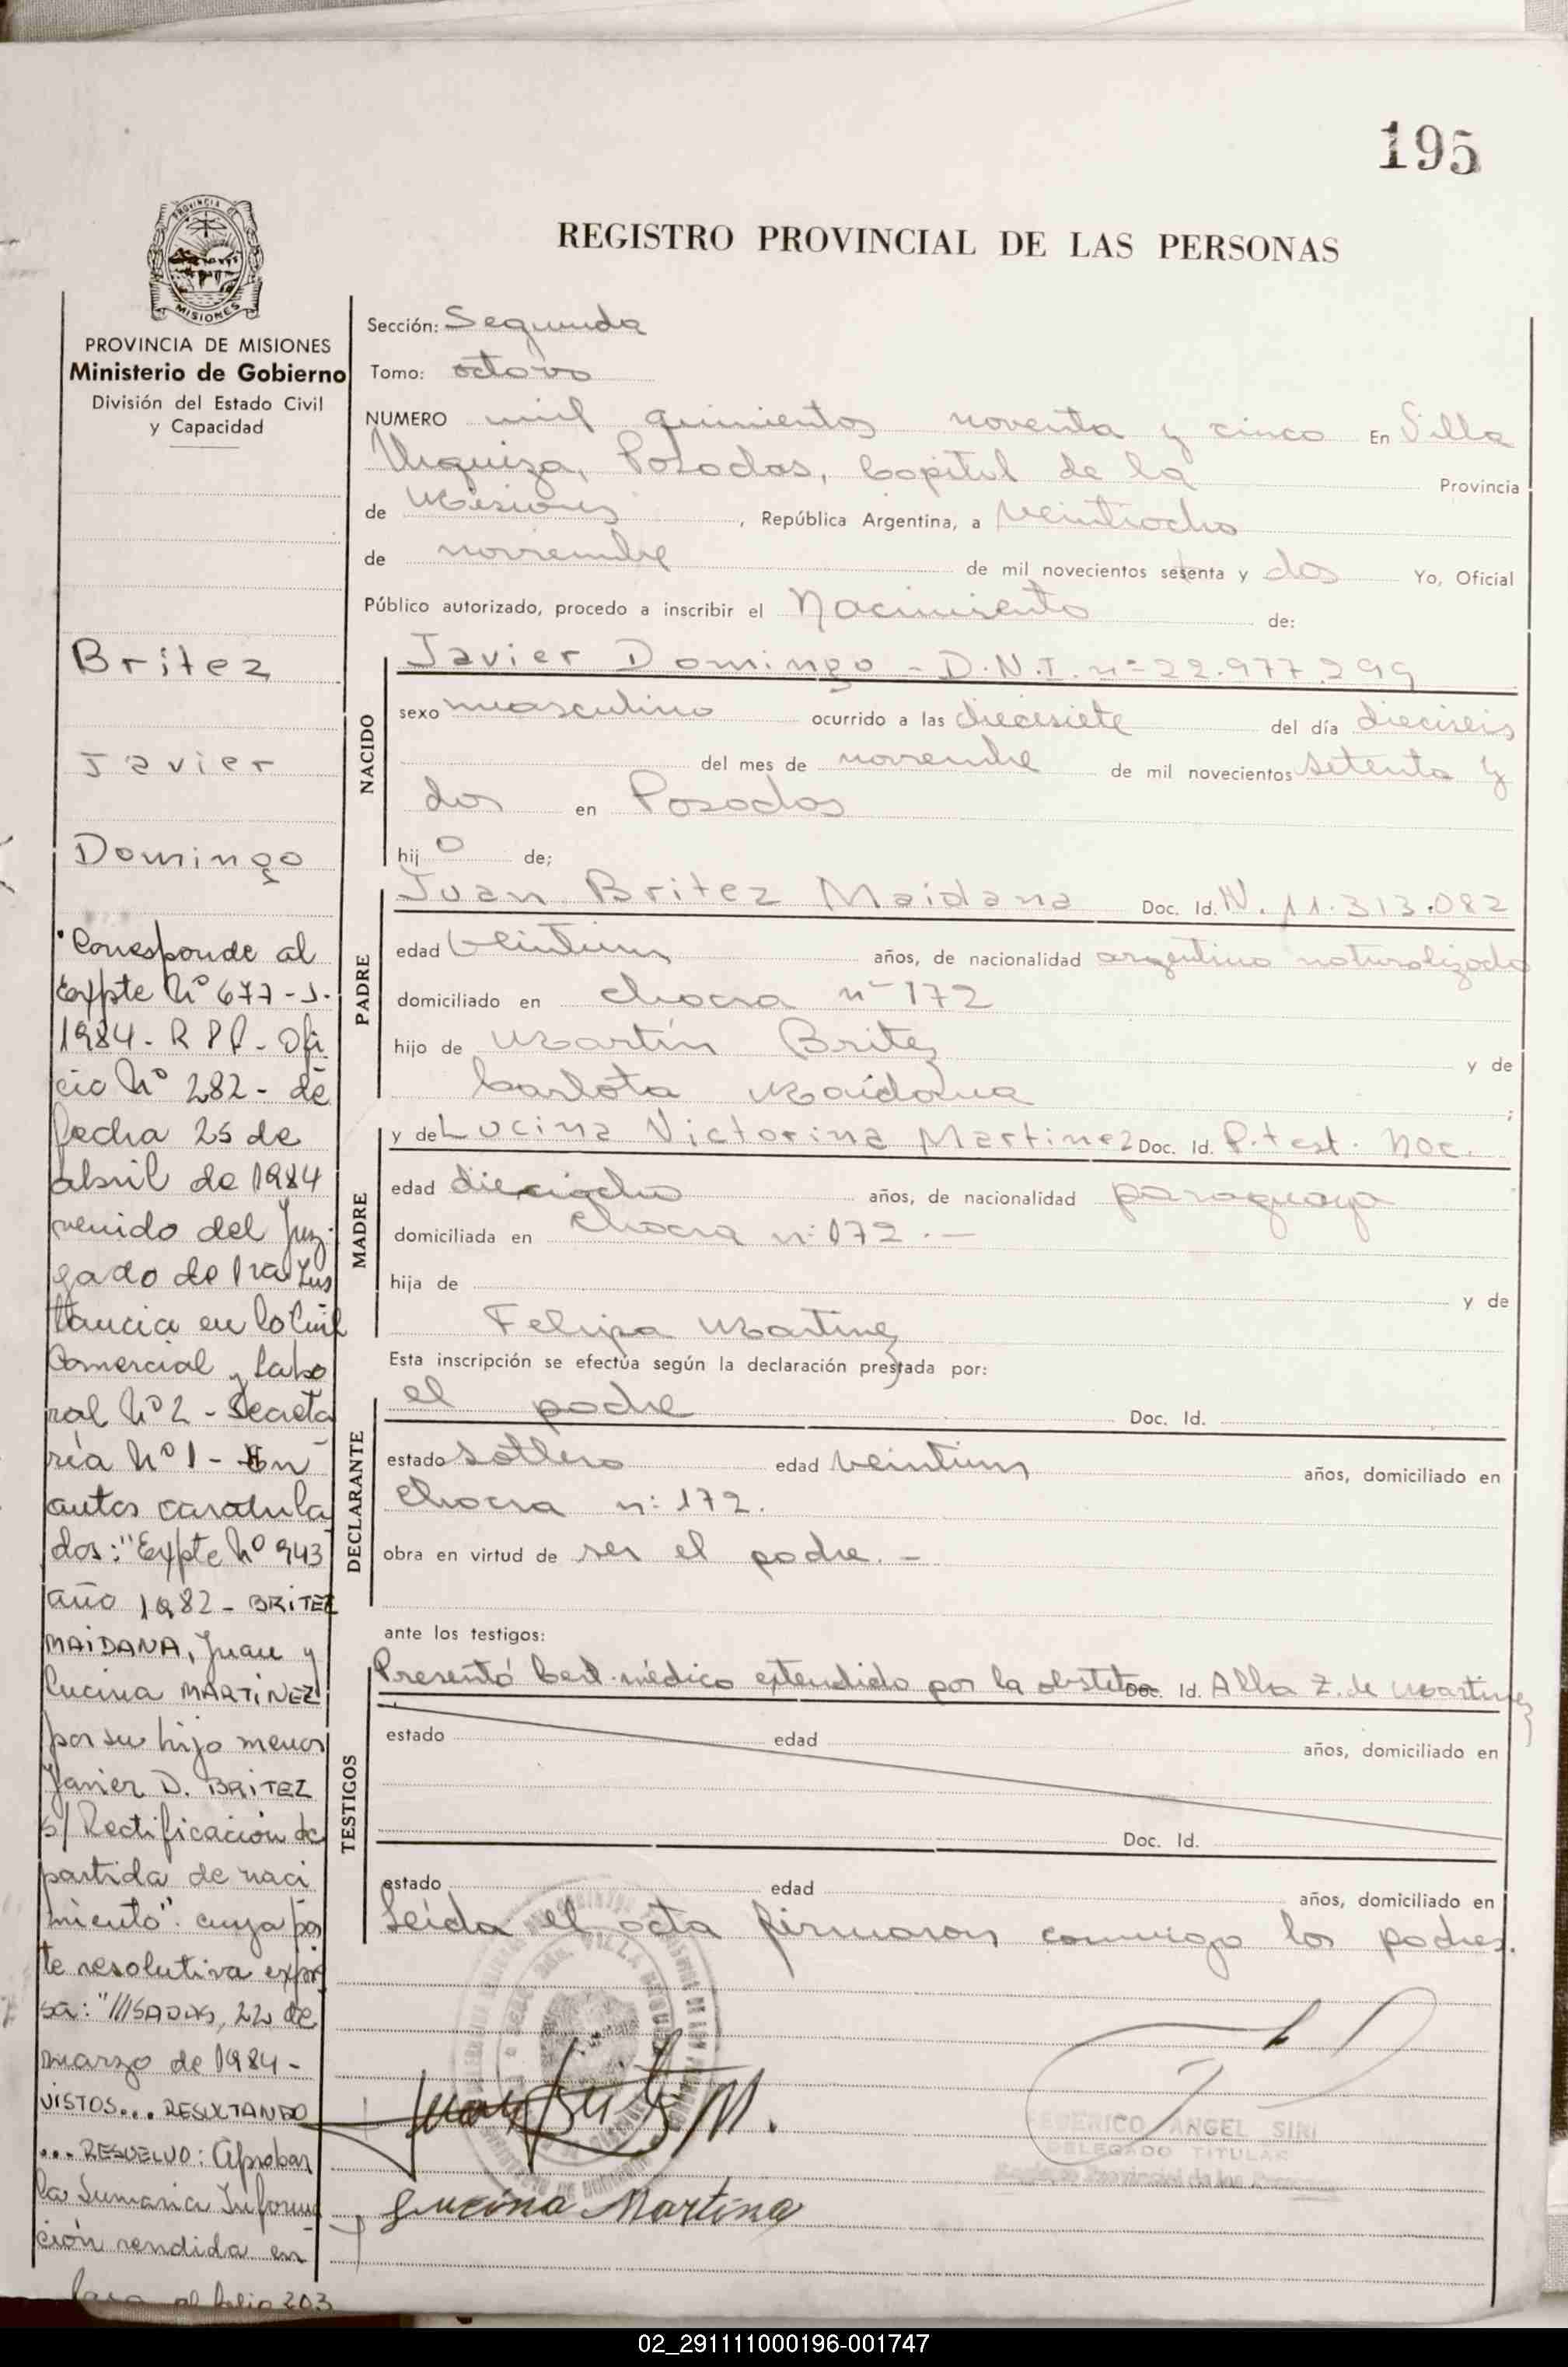 195
REGISTRO PROVINCIAL DE LAS PERSONAS
PROVINCIA DE
MISIONES
PROVINCIA DE MISIONES
Ministerio de Gobierno
División del Estado Civil
y Capacidad
Britez
Javier
Domingo
Corresponde al
Expte Nº 677-J-
1984- R P P- Ofi
cio Nº 282- de
fecha 25 de
abril de 1984
venido del Juz-
gado de 1ra Ins
tancia en lo Civil
Comercial y Labo
ral Nº 2 - Secreta
ría Nº 1 - En
autos caratula
dos: "Expte Nº 943
año 1982 - BRITEZ
MAIDANA, Juan y
Lucina MARTINEZ
por su hijo menor
Javier D. BRITEZ
s/ Rectificación de
partida de naci
miento". cuya par
te resolutiva expre
sa: "///SADAS, 22 de
marzo de 1984-
VISTOS... RESULTANDO
... RESUELVO: Aprobar
la Sumaria Informa
ción rendida en
Pasa al folio 203
Sección: Segunda
Tomo: octavo
NUMERO mil quinientos noventa y cinco En Villa
Urquiza, Posadas, Capital de la Provincia
de Misiones, República Argentina, a veintiocho
de noviembre de mil novecientos setenta y dos Yo, Oficial
Público autorizado, procedo a inscribir el Nacimiento de:
NACIDO
Javier Domingo - D.N.I. nº 22.977.299
sexo masculino ocurrido a las diecisiete del día dieciseis
del mes de noviembre de mil novecientos setenta y
dos en Posadas
hijo de;
PADRE
Juan Britez Maidana Doc. Id. N. 11.313.082
edad veintiun años, de nacionalidad argentino naturalizado
domiciliado en chacra nº 172
hijo de Martín Britez y de
Carlota Maidana ;
MADRE
y de Lucina Victorina Martinez Doc. Id. P.t est. Noc.
edad dieciocho años, de nacionalidad paraguaya
domiciliada en chacra n: 172.-
hija de y de
Felipa Martinez
Esta inscripción se efectúa según la declaración prestada por:
DECLARANTE
el padre Doc. Id.
estado soltero edad veintiun años, domiciliado en
chacra n: 172.
obra en virtud de ser el padre. -
ante los testigos:
TESTIGOS
Presentó Cert. médico extendido por la obstetra Doc. Id. Alba Z. de Martinez
estado edad años, domiciliado en
Doc. Id.
estado edad años, domiciliado en
Leída el acta firmaron conmigo los padres.
Juan Britez M.
Lucina Martinez
FEDERICO ANGEL SIRI
DELEGADO TITULAR
Registro Provincial de las Personas
02_291111000196-001747